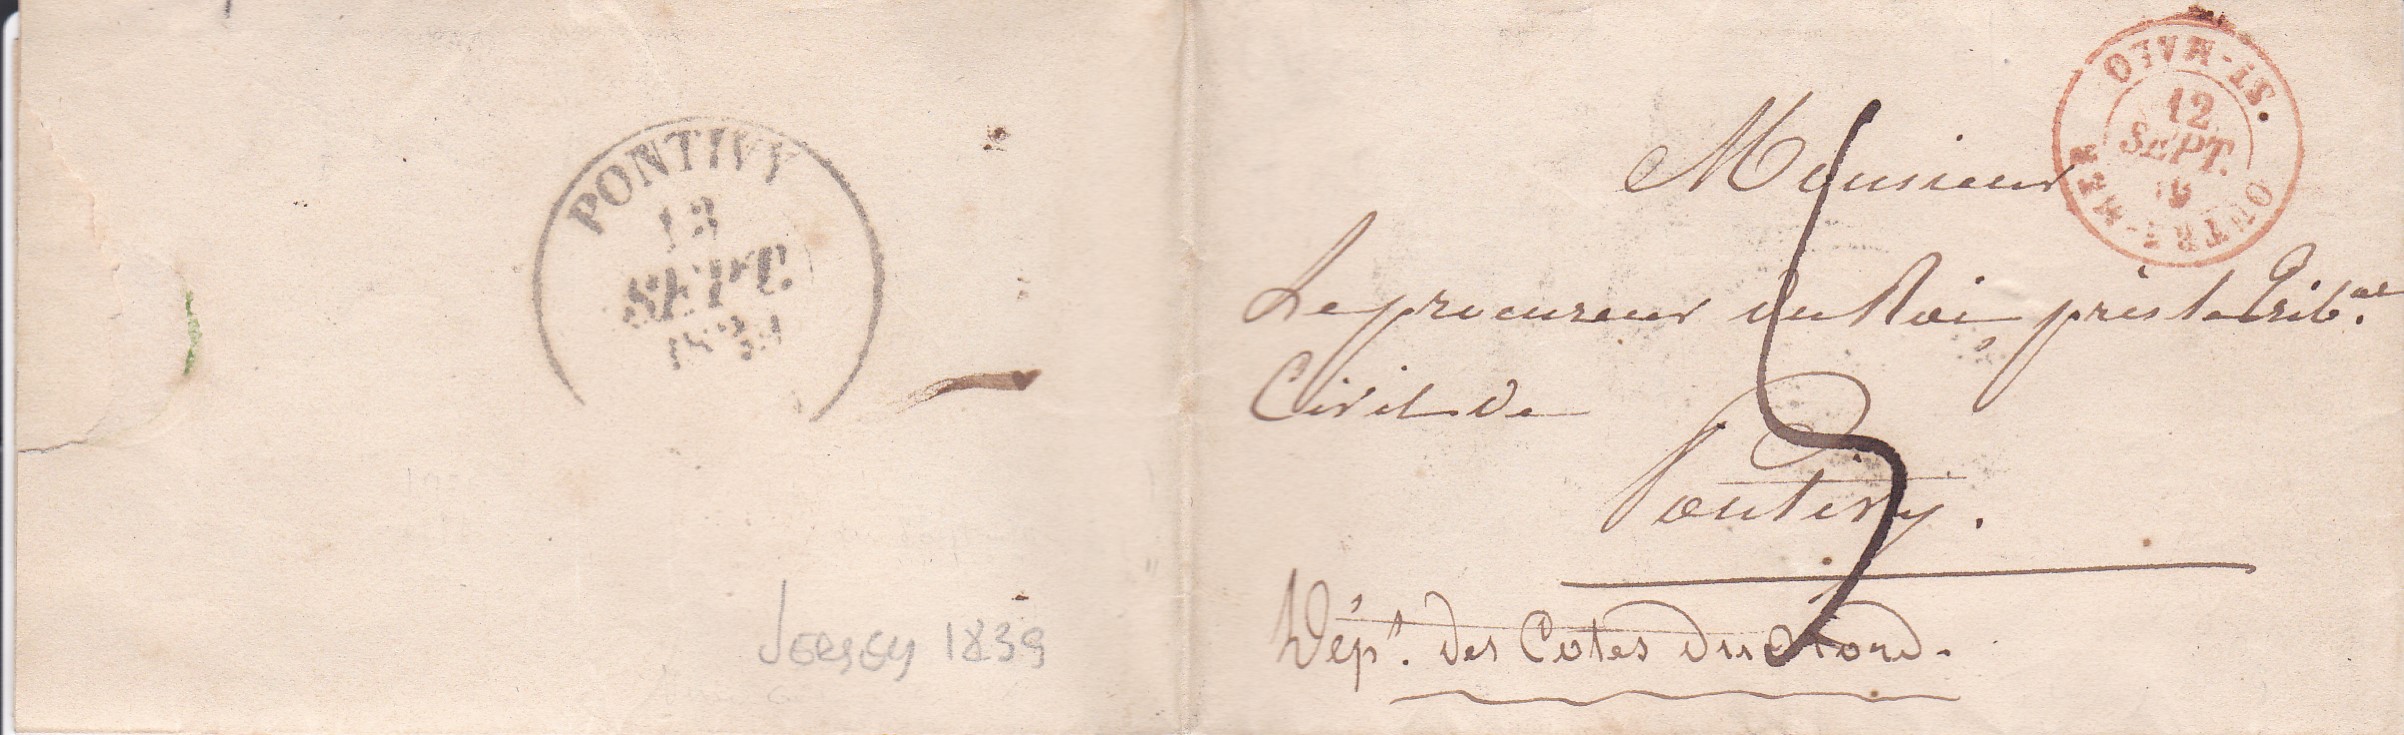 PONTIVY
13
SEPT.
1839
JERSEY 1839
ST-MALO
12
SEPT.
OUTRE-MER
Monsieur
Le procureur du Roi, près le Trib.al
Civil de
Pontivy.
Dép.t des Cotes du Nord.